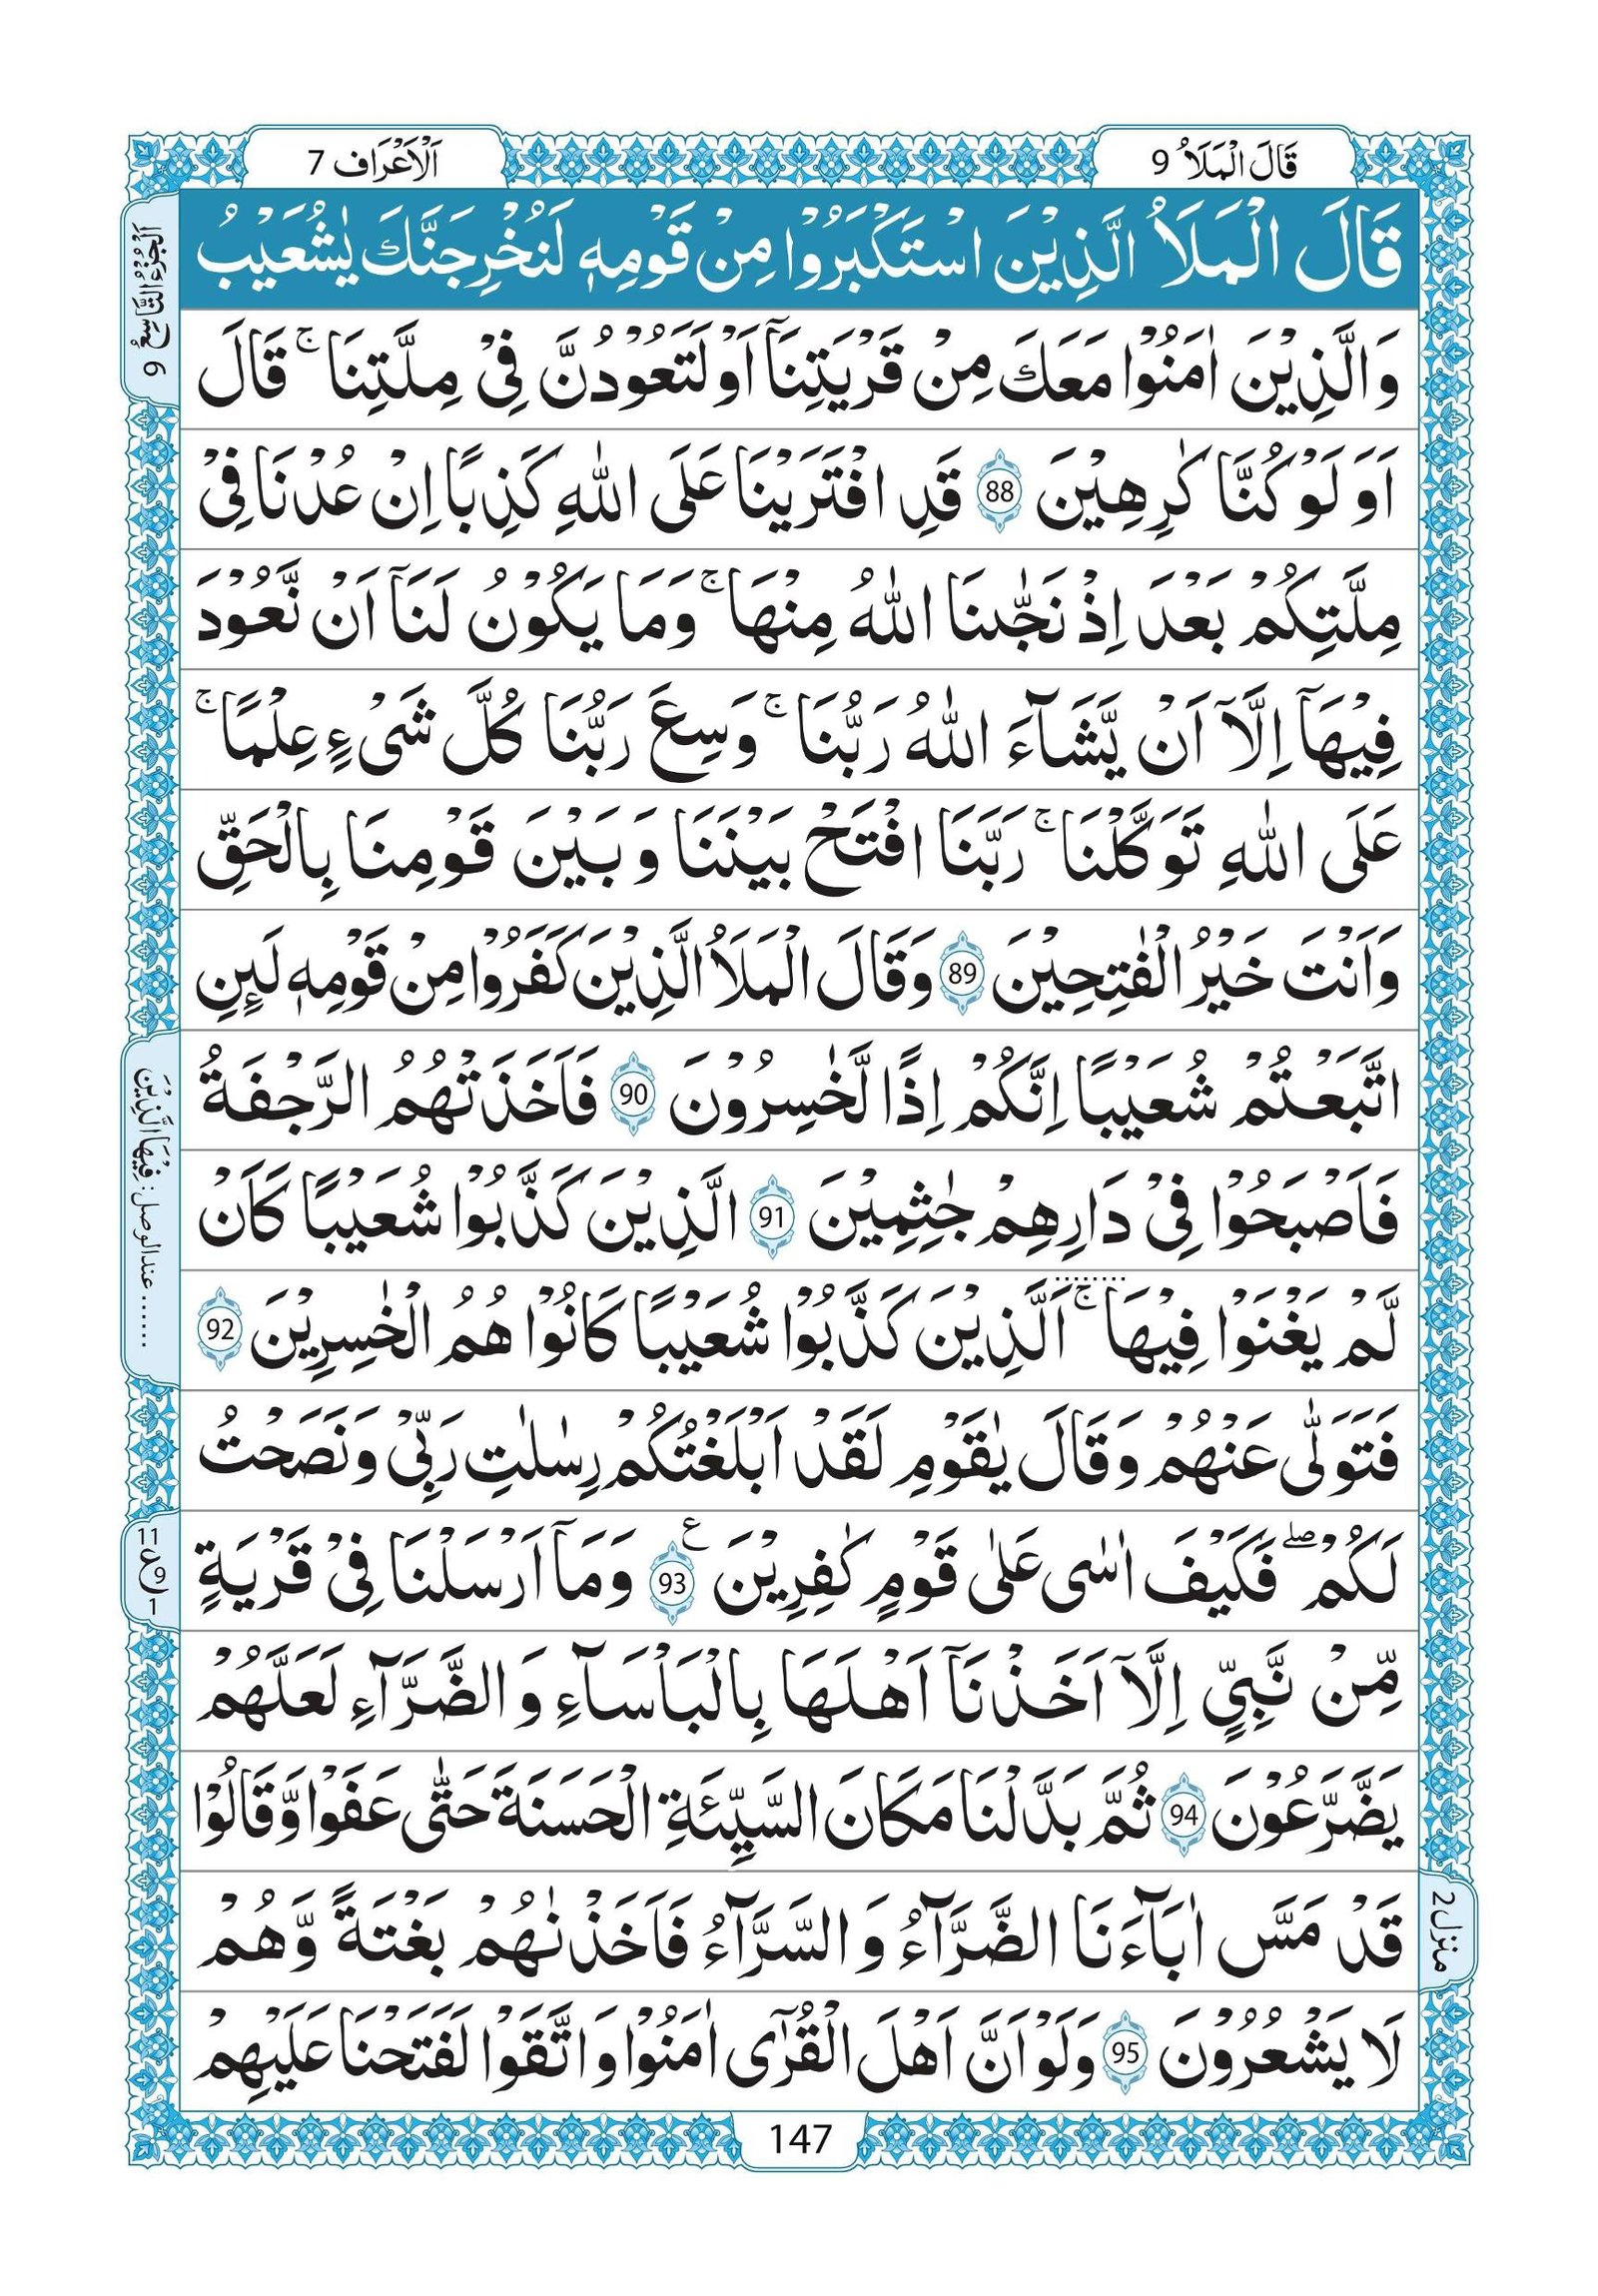 قَالَ الْمَلَاُ 9
اَلْاَعْرَاف 7
اَلْجُزْءُ التَّاسِعُ 9
قَالَ الْمَلَاُ الَّذِيْنَ اسْتَكْبَرُوْا مِنْ قَوْمِهٖ لَنُخْرِجَنَّكَ يٰشُعَيْبُ
وَالَّذِيْنَ اٰمَنُوْا مَعَكَ مِنْ قَرْيَتِنَاۤ اَوْ لَتَعُوْدُنَّ فِيْ مِلَّتِنَا ۚ قَالَ
اَوَ لَوْ كُنَّا كٰرِهِيْنَ 88 قَدِ افْتَرَيْنَا عَلَى اللّٰهِ كَذِبًا اِنْ عُدْنَا فِيْ
مِلَّتِكُمْ بَعْدَ اِذْ نَجّٰىنَا اللّٰهُ مِنْهَا ۚ وَمَا يَكُوْنُ لَنَاۤ اَنْ نَّعُوْدَ
فِيْهَاۤ اِلَّاۤ اَنْ يَّشَآءَ اللّٰهُ رَبُّنَا ۚ وَسِعَ رَبُّنَا كُلَّ شَيْءٍ عِلْمًا ۚ
عَلَى اللّٰهِ تَوَكَّلْنَا ۚ رَبَّنَا افْتَحْ بَيْنَنَا وَ بَيْنَ قَوْمِنَا بِالْحَقِّ
وَاَنْتَ خَيْرُ الْفٰتِحِيْنَ 89 وَقَالَ الْمَلَاُ الَّذِيْنَ كَفَرُوْا مِنْ قَوْمِهٖ لَىِٕنِ
اتَّبَعْتُمْ شُعَيْبًا اِنَّكُمْ اِذًا لَّخٰسِرُوْنَ 90 فَاَخَذَتْهُمُ الرَّجْفَةُ
فَاَصْبَحُوْا فِيْ دَارِهِمْ جٰثِمِيْنَ 91 الَّذِيْنَ كَذَّبُوْا شُعَيْبًا كَاَنْ
لَّمْ يَغْنَوْا فِيْهَا ۚ اَلَّذِيْنَ كَذَّبُوْا شُعَيْبًا كَانُوْا هُمُ الْخٰسِرِيْنَ 92
فَتَوَلّٰى عَنْهُمْ وَقَالَ يٰقَوْمِ لَقَدْ اَبْلَغْتُكُمْ رِسٰلٰتِ رَبِّيْ وَنَصَحْتُ
لَكُمْ ۖ فَكَيْفَ اٰسٰى عَلٰى قَوْمٍ كٰفِرِيْنَ ع 93 وَمَاۤ اَرْسَلْنَا فِيْ قَرْيَةٍ
مِّنْ نَّبِيٍّ اِلَّاۤ اَخَذْنَاۤ اَهْلَهَا بِالْبَاْسَآءِ وَ الضَّرَّآءِ لَعَلَّهُمْ
يَضَّرَّعُوْنَ 94 ثُمَّ بَدَّلْنَا مَكَانَ السَّيِّئَةِ الْحَسَنَةَ حَتّٰى عَفَوْا وَّقَالُوْا
قَدْ مَسَّ اٰبَآءَنَا الضَّرَّآءُ وَ السَّرَّآءُ فَاَخَذْنٰهُمْ بَغْتَةً وَّهُمْ
لَا يَشْعُرُوْنَ 95 وَلَوْ اَنَّ اَهْلَ الْقُرٰۤى اٰمَنُوْا وَ اتَّقَوْا لَفَتَحْنَا عَلَيْهِمْ
فِيْهَا الَّذِيْنَ : عند الوصل ......
11 ع 9 1
منزل 2
147